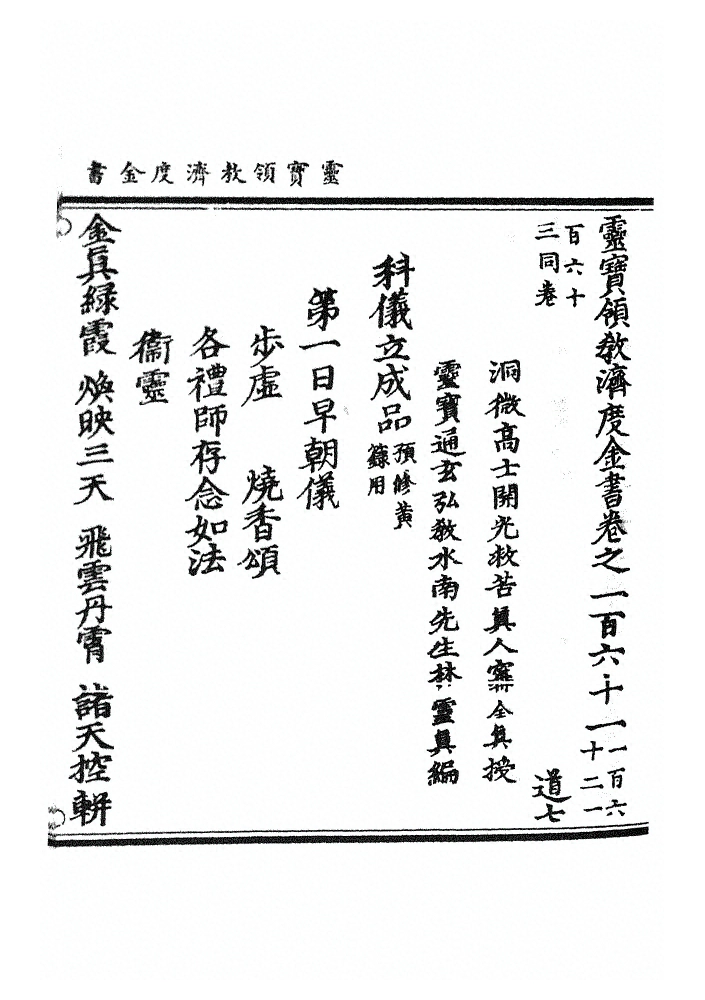 靈寶領教濟度金書
靈寶領教濟度金書卷之一百六十一一百六十二一
百六十三同卷 道七
洞微高士開光救苦眞人寗全眞授
靈寶通玄弘教水南先生林靈眞編
科儀立成品預修黃籙用
第一日早朝儀
步虛 燒香頌
各禮師存念如法
衞靈
金眞緑霞 煥映三天 飛雲丹霄 諸天控軿